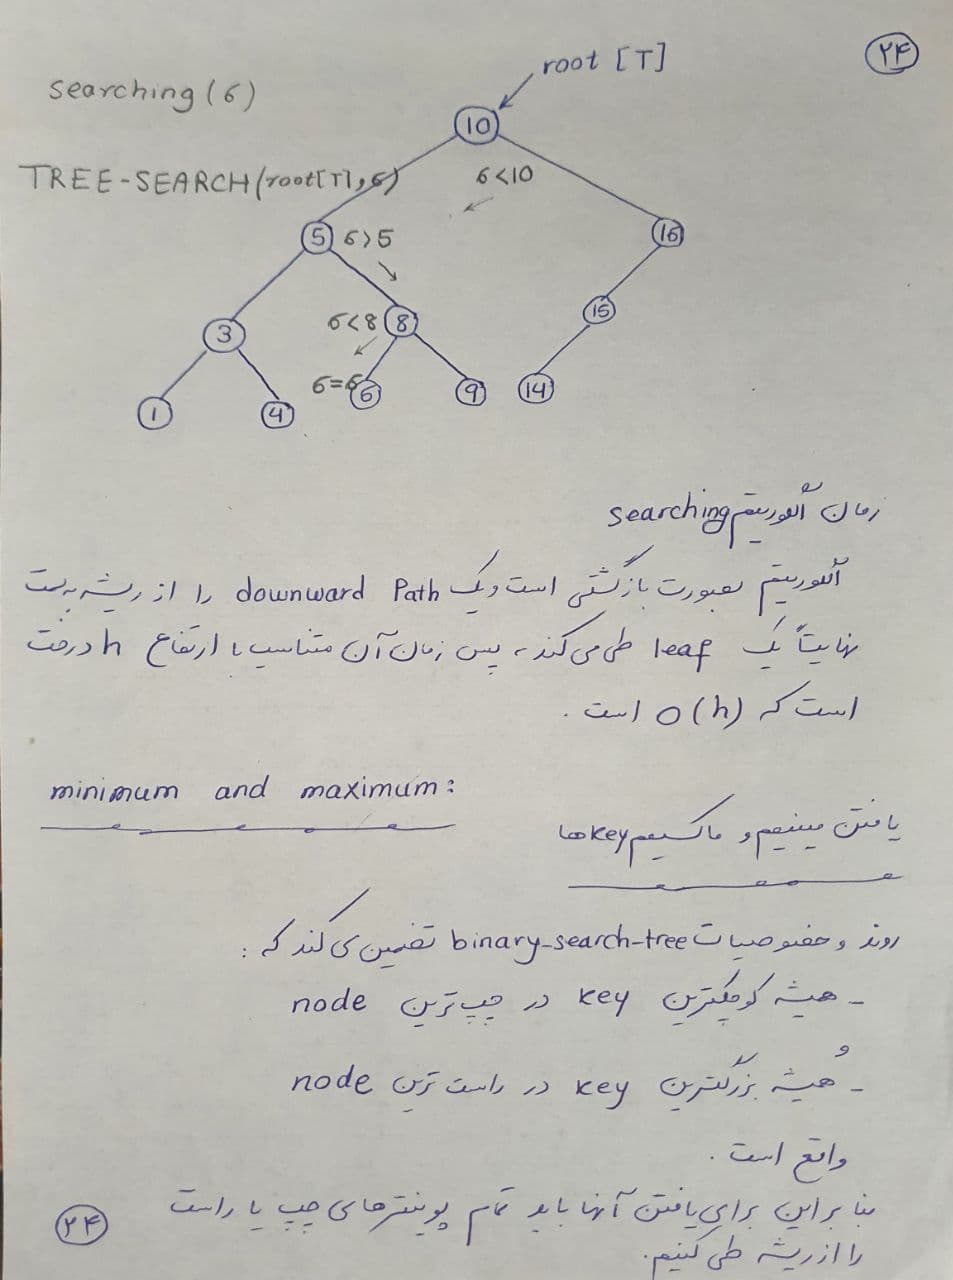 ۲۴
root [T]
searching (6)
10
TREE-SEARCH(root[T],6)
6<10
5 6>5
16
6<8 8
15
3
6=6 6
9
14
1
4
زمان الگوریتم searching
الگوریتم بصورت بازگشتی است و یک downward Path را از ریشه به سمت
نهایتاً یک leaf طی می کند، پس زمان آن متناسب با ارتفاع h درخت
است که O(h) است .
minimum and maximum:
یافتن مینیمم و ماکسیمم key ها
روند و خصوصیات binary-search-tree تضمین می کند که :
- همیشه کوچکترین key در چپ ترین node
و
- همیشه بزرگترین key در راست ترین node
واقع است .
بنا براین برای یافتن آنها باید تمام پوینترهای چپ یا راست
را از ریشه طی کنیم.
۲۴